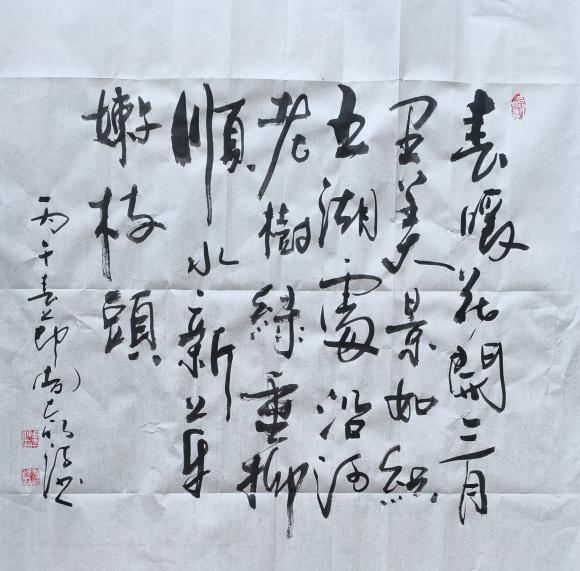 春暖花開三月
里美景如織
五湖雲沿河
老樹綠垂柳
順水新草
嫩枝頭
丙午春節尚